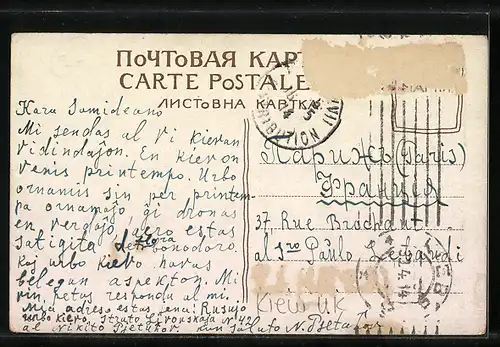 ПОЧТОВАЯ КАР
CARTE POSTALE
ЛИСТОВНА КАРТКА
Kara Samideano
Mi sendas al vi kievan
vidindaĵon. En kievon
venis printempo. Urbo
ornamis sin per printem-
pa ornamaĵo ĝi dronas
en verdaĵo, aero estas
satigita de
kaj urbo kievo havas
belegan aspekton. Mi
vin, petas respondu al mi.
Mia adreso estas jena: Rusujo
urbo Kievo, Strato Lvovskaja N 42
al Nikito kun saluto N.
Парижъ (Paris)
Франція
37 Rue Brochant
al sro Paulo
Kiew UK